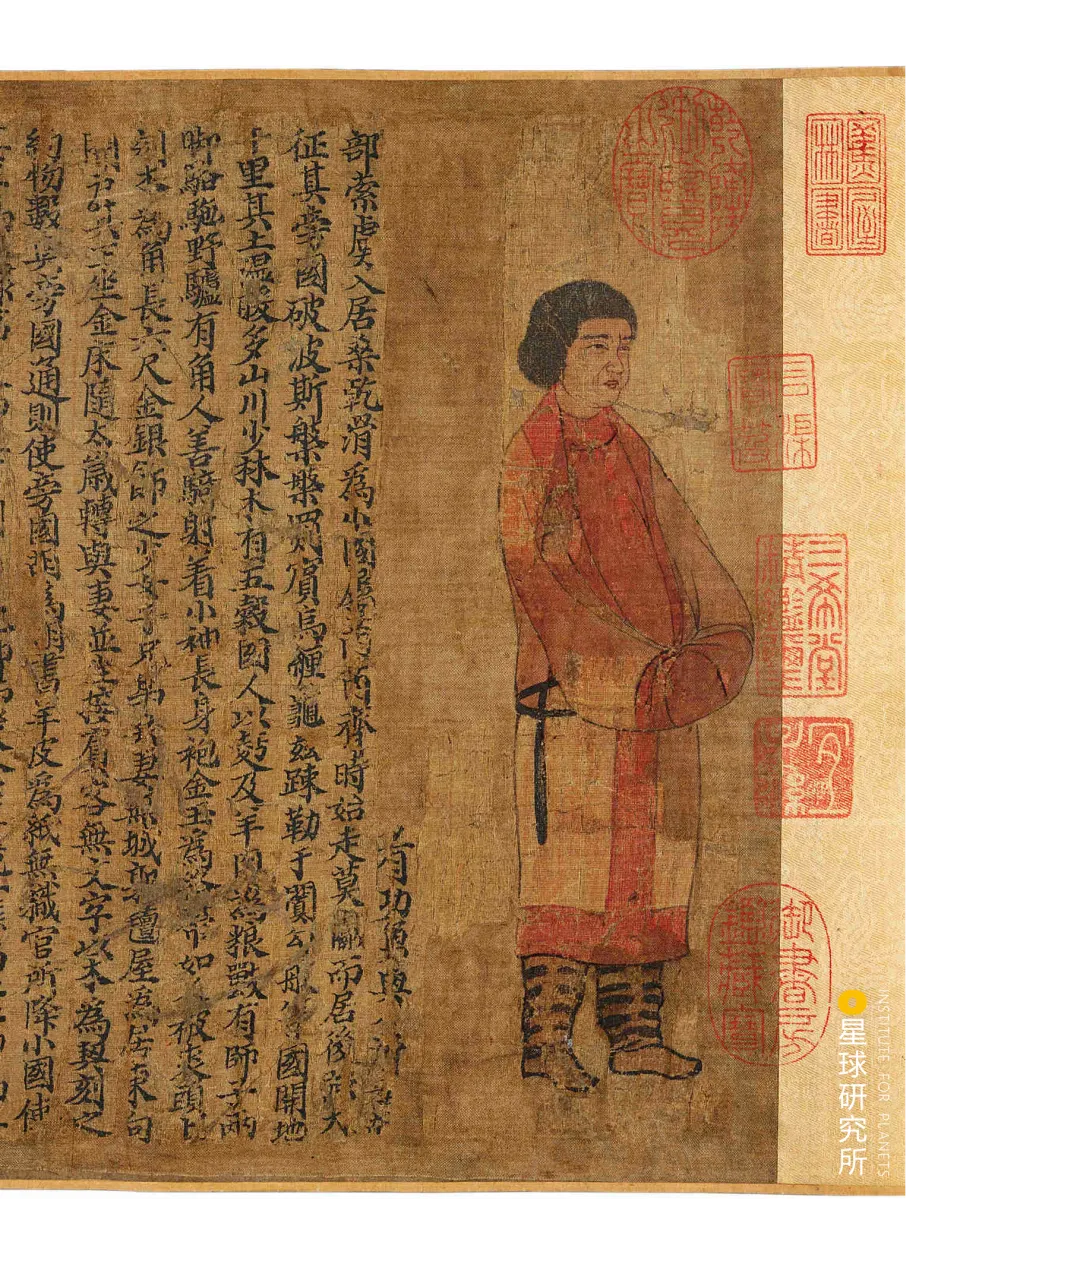 有功
部索虜入居桑乾滑為小國屬芮芮齊時始走莫獻而居後強大
征其旁國破波斯槃槃罽賓烏纏龜茲疎勒于闐勾般等國開地
千里其土溫暖多山川少林木有五穀國人以麨及羊肉為粮獸有師子兩
脚駱駞野驢有角人善騎射着小袖長身袍金玉為絡帶 被裘頭上
刻木為角長六尺金銀飾之少女子兄弟共妻無城郭氊屋為居東向
開户其王坐金床隨太歲轉與妻並坐接賓客無文字以木為契刻之
約物數與旁國通則使旁國胡為胡書羊皮為紙無職官所降小國使
蕉林書屋
三希堂精鑑璽
宜子孫
御書房鑑藏寶
星球研究所
INSTITUTE FOR PLANETS